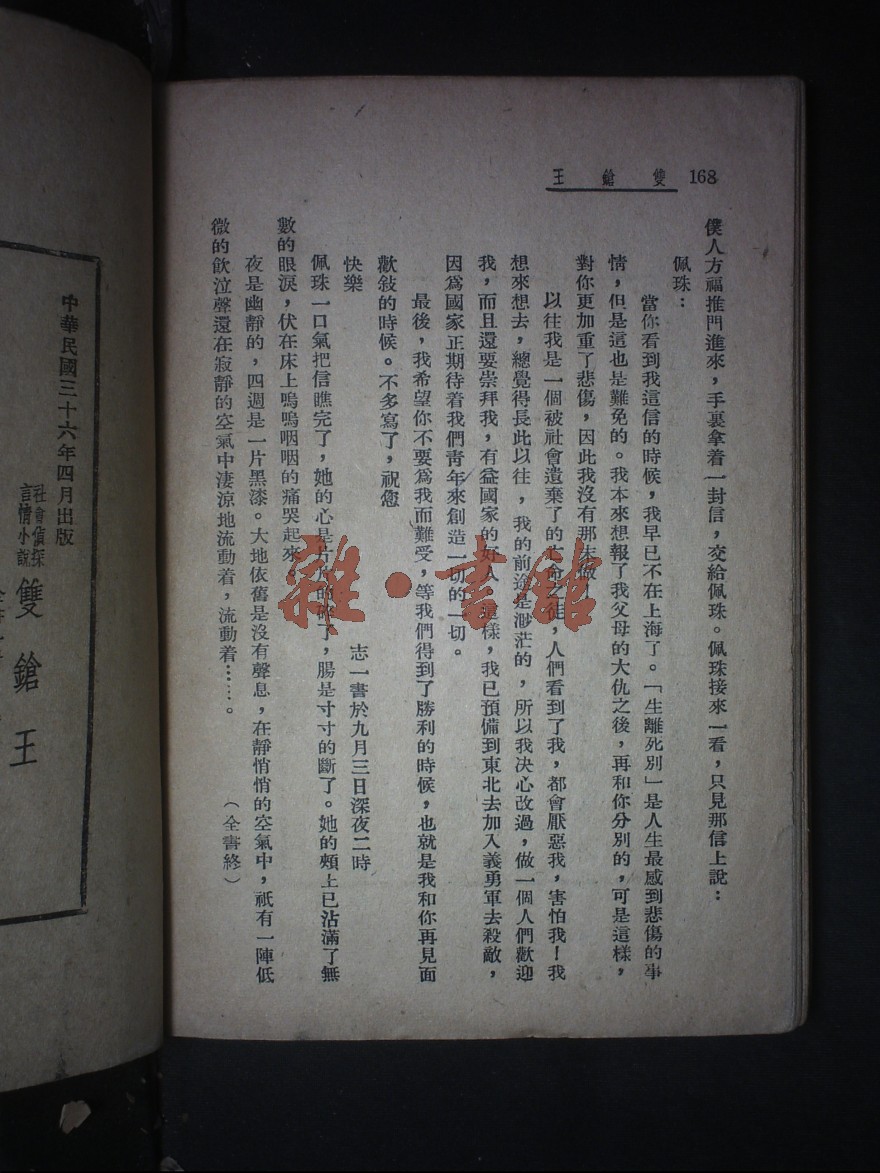 168 雙鎗王
僕人方福推門進來，手裏拿着一封信，交給佩珠。佩珠接來一看，只見那信上說：
佩珠：
當你看到我這信的時候，我早已不在上海了。「生離死別」是人生最感到悲傷的事
情，但是這也是難免的。我本來想報了我父母的大仇之後，再和你分別的，可是這樣，
對你更加重了悲傷，因此我沒有那末做！
以往我是一個被社會遺棄了的亡命之徒，人們看到了我，都會厭惡我，害怕我！我
想來想去，總覺得長此以往，我的前途是渺茫的，所以我決心改過，做一個人們歡迎
我，而且還要崇拜我，有益國家的好人，這樣，我已預備到東北去加入義勇軍去殺敵，
因爲國家正期待着我們靑年來創造一切的一切。
最後，我希望你不要爲我而難受，等我們得到了勝利的時候，也就是我和你再見面
歡敍的時候。不多寫了，祝您
快樂
志一書於九月三日深夜二時
佩珠一口氣把信瞧完了，她的心是片片的碎了，腸是寸寸的斷了。她的頰上已沾滿了無
數的眼淚，伏在床上嗚嗚咽咽的痛哭起來
夜是幽靜的，四週是一片黑漆。大地依舊是沒有聲息，在靜悄悄的空氣中，祇有一陣低
微的飲泣聲還在寂靜的空氣中淒涼地流動着，流動着……。
（全書終）
中華民國三十六年四月出版
社會偵探
言情小說
雙鎗王
雜·書館